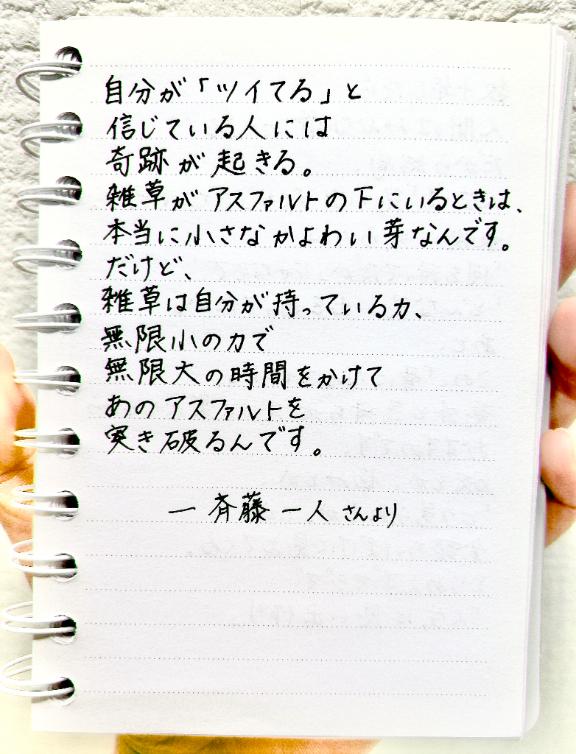 自分が「ツイてる」と
信じている人には
奇跡が起きる。
雑草がアスファルトの下にいるときは、
本当に小さなかよわい芽なんです。
だけど、
雑草は自分が持っている力、
無限小の力で
無限大の時間をかけて
あのアスファルトを
突き破るんです。
— 斉藤一人さんより